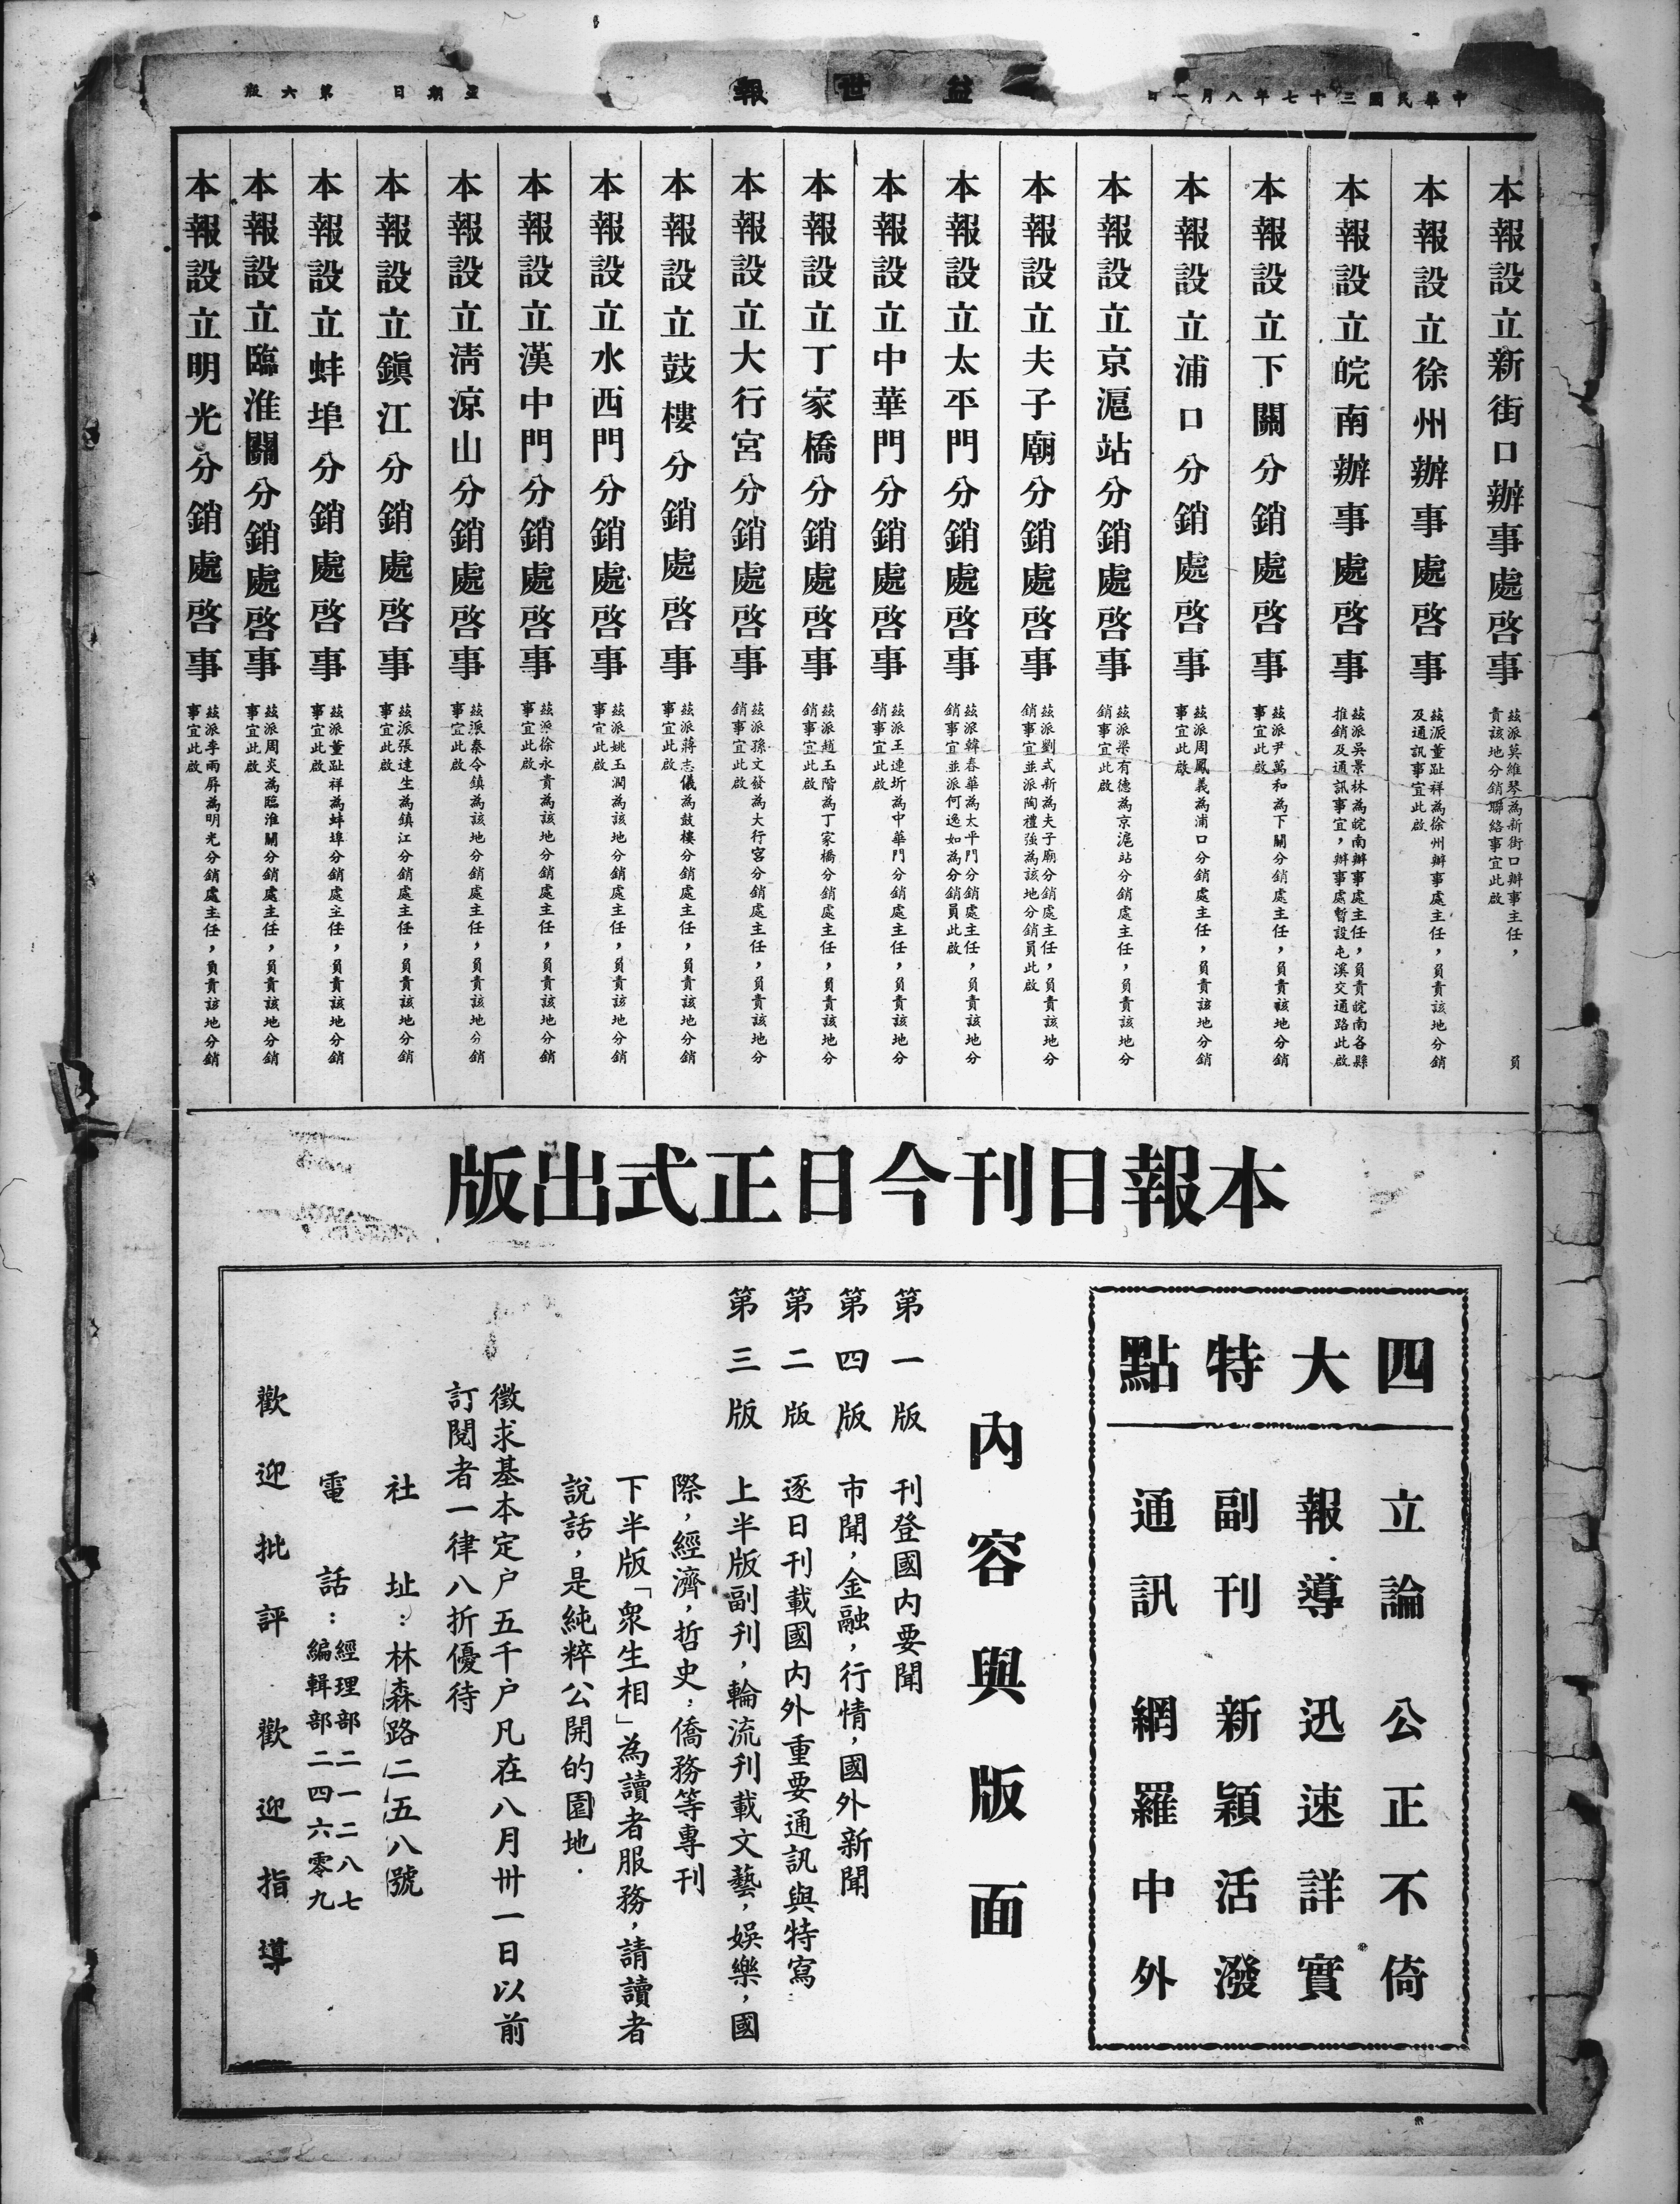 中華民國三十七年八月一日
益世報
星期日
第六版
本報設立新街口辦事處啓事
茲派莫維琴為新街口辦事主任，員
責該地分銷聯絡事宜此啟
本報設立徐州辦事處啓事
茲派董趾祥為徐州辦事處主任，員責該地分銷
及通訊事宜此啟
本報設立皖南辦事處啓事
茲派吳景林為皖南辦事處主任，員責皖南各縣
推銷及通訊事宜，辦事處暫設屯溪交通路此啟
本報設立下關分銷處啓事
茲派尹萬和為下關分銷處主任，員責該地分銷
事宜此啟
本報設立浦口分銷處啓事
茲派周鳳義為浦口分銷處主任，員責該地分銷
事宜此啟
本報設立京滬站分銷處啓事
茲派梁有德為京滬站分銷處主任，員責該地分
銷事宜此啟
本報設立夫子廟分銷處啓事
茲派劉式新為夫子廟分銷處主任，員責該地分
銷事宜並派陶禮強為該地分銷員此啟
本報設立太平門分銷處啓事
茲派韓春華為太平門分銷處主任，員責該地分
銷事宜並派何逸如為分銷員此啟
本報設立中華門分銷處啓事
茲派王連圻為中華門分銷處主任，員責該地分
銷事宜此啟
本報設立丁家橋分銷處啓事
茲派趙玉階為丁家橋分銷處主任，員責該地分
銷事宜此啟
本報設立大行宮分銷處啓事
茲派孫文發為大行宮分銷處主任，員責該地分
銷事宜此啟
本報設立鼓樓分銷處啓事
茲派蔣志儀為鼓樓分銷處主任，員責該地分銷
事宜此啟
本報設立水西門分銷處啓事
茲派姚玉潤為該地分銷處主任，員責該地分銷
事宜此啟
本報設立漢中門分銷處啓事
茲派徐永貴為該地分銷處主任，員責該地分銷
事宜此啟
本報設立清涼山分銷處啓事
茲派秦令鎮為該地分銷處主任，員責該地分銷
事宜此啟
本報設立鎮江分銷處啓事
茲派張達生為鎮江分銷處主任，員責該地分銷
事宜此啟
本報設立蚌埠分銷處啓事
茲派董趾祥為蚌埠分銷處主任，員責該地分銷
事宜此啟
本報設立臨淮關分銷處啓事
茲派周炎為臨淮關分銷處主任，員責該地分銷
事宜此啟
本報設立明光分銷處啓事
茲派李雨屏為明光分銷處主任，員責該地分銷
事宜此啟
本報日刊今日正式出版
四大特點
立論　公正不倚
報導　迅速詳實
副刊　新穎活潑
通訊　網羅中外
內容與版面
第一版　刊登國內要聞
第四版　市聞，金融，行情，國外新聞
第二版　逐日刊載國內外重要通訊與特寫
第三版　上半版副刊，輪流刊載文藝，娛樂，國
際，經濟，哲史，僑務等專刊
下半版「衆生相」為讀者服務，請讀者
說話，是純粹公開的園地．
徵求基本定户五千户凡在八月卅一日以前
訂閱者一律八折優待
社　址：林森路二五八號
電　話：經理部二一二八七
編輯部二四六零九
歡迎批評　歡迎指導